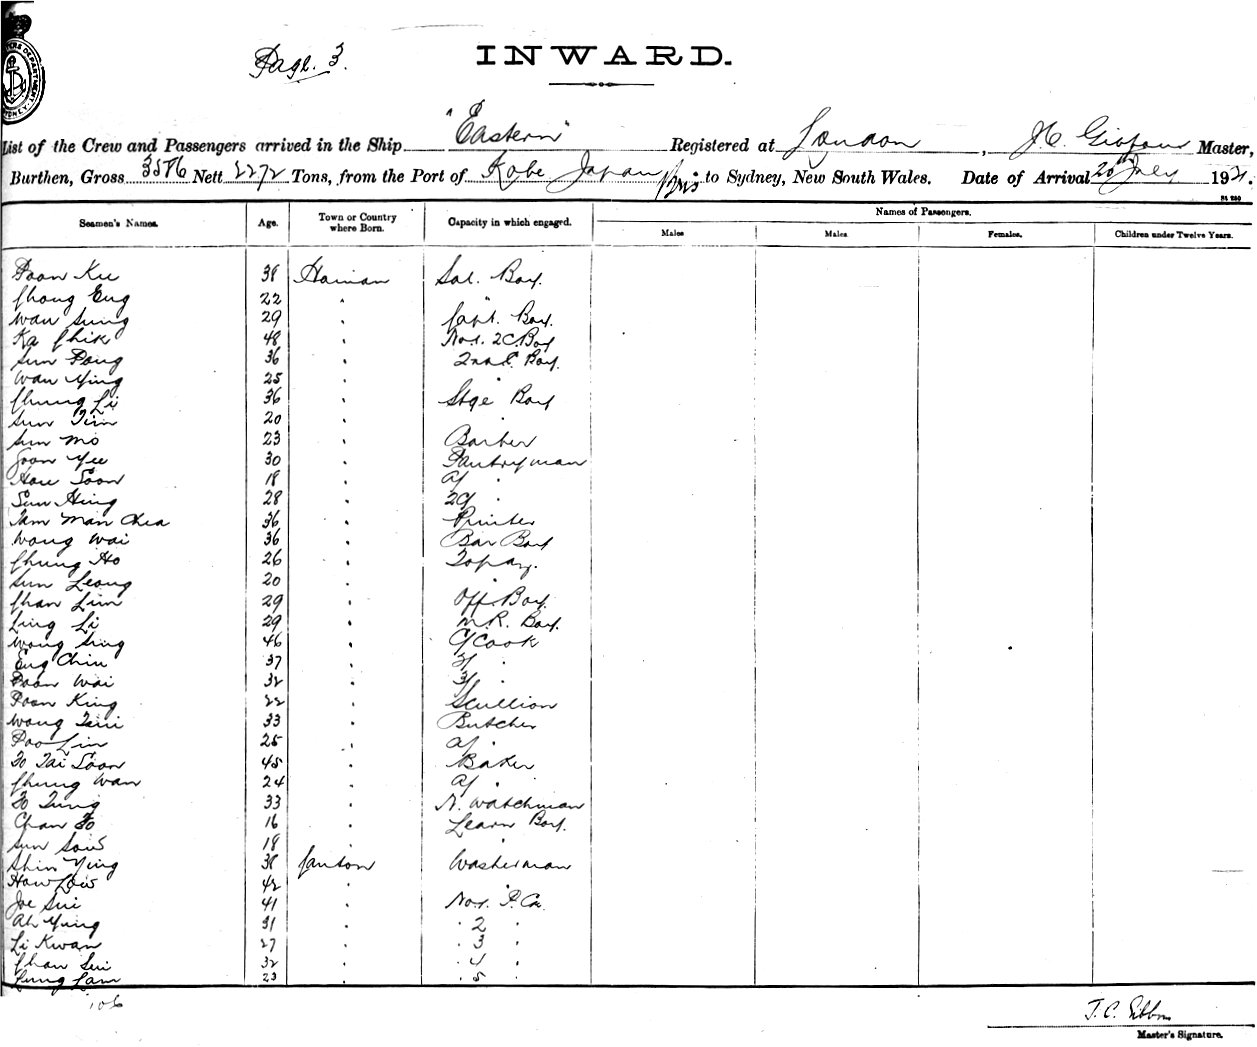 Page. 3.
INWARD.
List of the Crew and Passengers arrived in the Ship "Eastern" Registered at London, J.C. Master,
Burthen, Gross 3586 Nett 2272 Tons, from the Port of Kobe Japan to Sydney, New South Wales. Date of Arrival 20th July 192
Seamen's Names. Age. Town or Country where Born. Capacity in which engaged. Names of Passengers.
Males Males Females. Children under Twelve Years.
Poon Kee 38 Hainan Sal. Boy.
Chong Eng 22 "
Wan Sung 29 " Capt. Boy.
Ka Chik 48 " No1. 2C. Boy
Sun Pong 36 " 2nd C. Boy.
Wan Ying 25 "
Chung Li 36 " Stge Boy
Sun Tim 20 "
Sun Mo 23 " Barber
Soon Yee 30 " Pantryman
How Soon 18 " a/ "
Sun Hing 28 " 2a/ "
Tam Man Chea 36 " Printer
Wong Wai 36 " Bar Boy
Chung Ho 26 " Topaz.
Sun Leong 20 "
Chan Lim 29 " Off. Boy.
Ling Li 29 " M.R. Boy.
Wong Sing 46 " C/Cook
Eng Chin 37 " 2/ "
Poon Wai 32 " 3/ "
Poon King 22 " Scullion
Wong Tsui 33 " Butcher
Poo Lin 25 " a/ "
Fo Tai Soon 45 " Baker
Chung Wan 24 " a/ "
Fo Tung 33 " N. Watchman
Chan Fo 16 " Learn Boy.
Sun Sow 18 "
Shin Ying 38 Canton Washerman
How Low 42 "
Joe Sui 41 " No1. F. Ca.
Ah Yung 31 " " 2 "
Li Kwan 27 " " 3 "
Chan Sui 32 " " 4 "
Lung Lam 23 " " 5 "
106
J.C. Gibbon
Master's Signature.